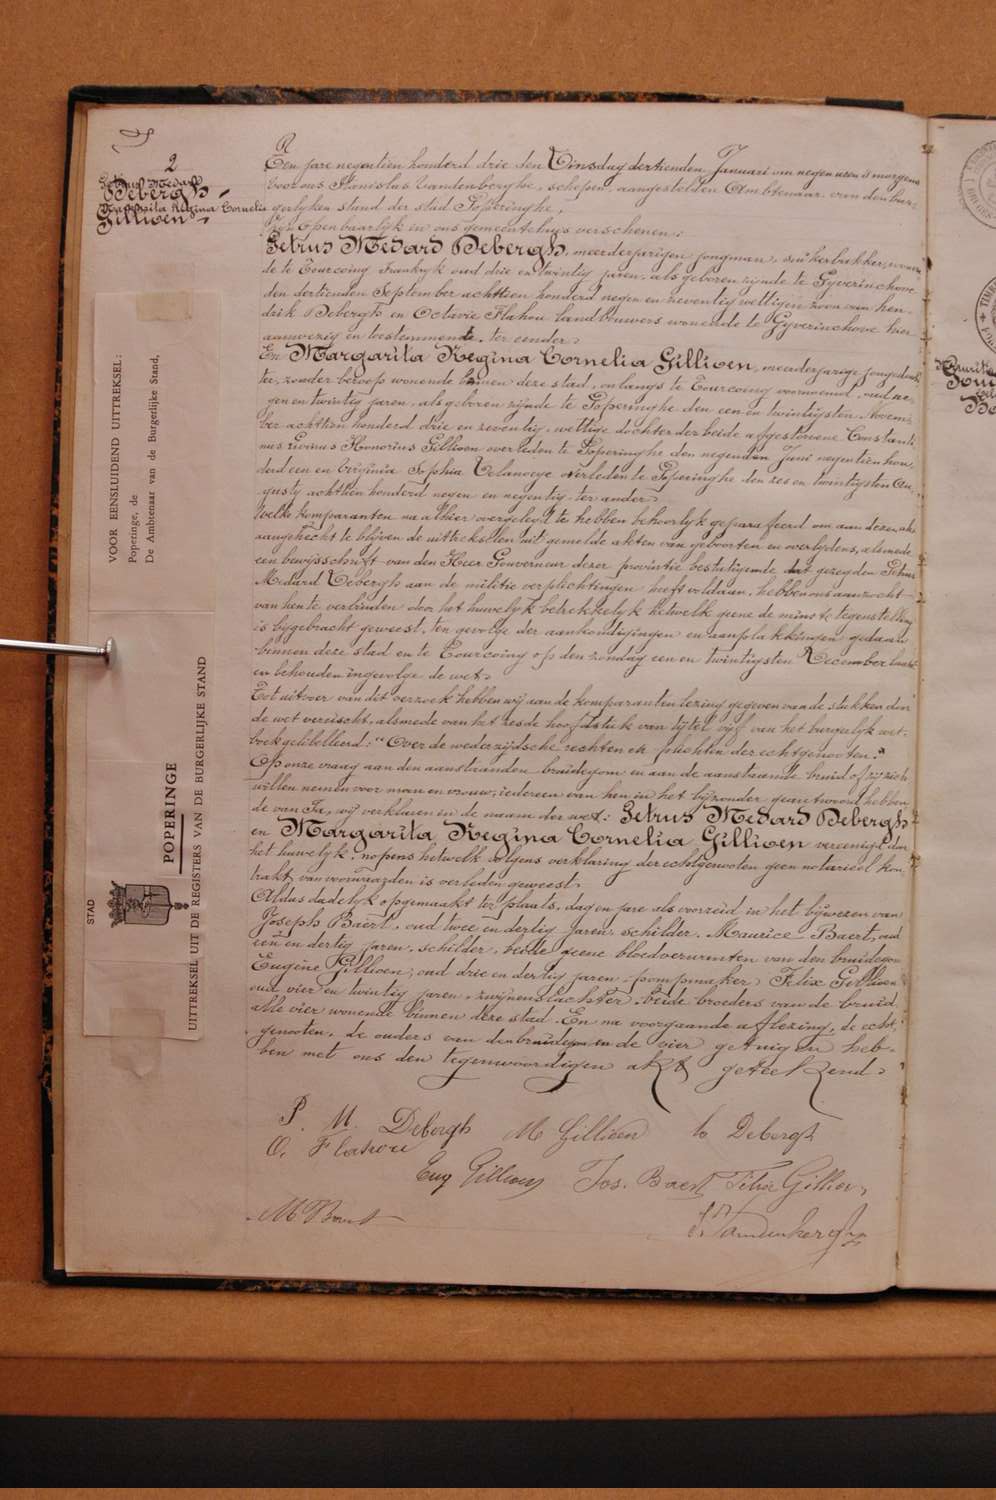 2
Petrus Medard
Debergh
Margarita Regina Cornelia
Gillioen
Een jare negentien honderd drie den Dinsdag dertienden Januari om negen uren 's morgens
voor ons Stanislas Vandenberghe, schepen, aangestelden Ambtenaar van den bur-
gerlyken stand der stad Poperinghe,
Zyn openbaarlyk in ons gemeentehuis verschenen:
Petrus Medard Debergh, meerderjarigen jongman, suikerbakker, wonen
de te Tourcoing Frankryk oud drie en twintig jaren, als geboren zynde te Gyverinchove
den dertienden September achttien honderd negen en zeventig wettigen zoon van Hen-
drik Debergh en Octavie Flahou landbouwers wonende te Gyverinchove hier
aanwezig en toestemmende, ter eender
En Margarita Regina Cornelia Gillioen, meerderjarige jongedoch-
ter, zonder beroep wonende binnen deze stad, onlangs te Tourcoing voorwonend, oud ne-
gen en twintig jaren, als geboren zynde te Poperinghe den een en twintigsten Novem-
ber achttien honderd drie en zeventig, wettige dochter der beide afgestorvene Constanti-
nus Livinus Honorius Gillioen overleden te Poperinghe den negenden Juni negentien hon-
derd een en Virginia Sophia Delanoeye overleden te Poperinghe den zes en twintigsten Au-
gusty achttien honderd negen en negentig, ter ander
Welke komparanten na alhier overgelegd te hebben behoorlyk geparafeerd om aan dezen akt
aangehecht te blyven de uittrekselen uit gemelde akten van geboorten en overlydens, alsmede
een bewysschrift van den Heer Gouverneur dezer provintie bestatigende dat gezegden Petrus
Medard Debergh aan de militie verplichtingen heeft voldaan, hebben ons aanzocht
van hen te verbinden door het huwelyk betrekkelyk hetwelk geene de minste tegenstelling
is bygebracht geweest, ten gevolge der aankondigingen en aanplakkingen gedaan
binnen deze stad en te Tourcoing op den zondag een en twintigsten December laatst
en behouden ingevolge de wet.
Tot uitvoer van dit verzoek hebben wy aan de komparanten lezing gegeven van de stukken door
de wet vereischt, alsmede van het zesde hoofdstuk van tytel vyf van het burgerlyk wet-
boek gelibelleerd: "Over de wederzydsche rechten en plichten der echtgenooten."
Op onze vraag aan den aanstaanden bruidegom en aan de aanstaande bruid of zy zich
willen nemen voor man en vrouw, iedereen van hen in het byzonder geantwoord hebben
de van Ja, wy verklaren in de naam der wet: Petrus Medard Debergh
en Margarita Regina Cornelia Gillioen vereenigd door
het huwelyk, nopens hetwelk volgens verklaring der echtgenooten geen notarieel kon-
trakt van voorwaarden is verleden geweest.
Aldus dadelyk opgemaakt ter plaats, dag en jare als voorzeid in het bywezen van
Joseph Baert, oud twee en dertig jaren, schilder, Maurice Baert, oud
een en dertig jaren, schilder, beide geene bloedverwanten van den bruidegom
Eugène Gillioen, oud drie en dertig jaren, pompmaker, Felix Gillioen
oud vier en twintig jaren, zwynenslachter, beide broeders van de bruid
alle vier wonende binnen deze stad. En na voorgaande aflezing, de echt-
genooten, de ouders van den bruidegom en de vier getuigen heb-
ben met ons den tegenwoordigen akt geteekend.
P. M. Debergh M Gillioen h Debergh
O. Flahou
Eug Gillioen Jos. Baert Felix Gillioen
M Baert
S. Vandenberghe
VOOR EENSLUIDEND UITTREKSEL:
Poperinge, de
De Ambtenaar van de Burgerlijke Stand,
STAD
POPERINGE
UITTREKSEL UIT DE REGISTERS VAN DE BURGERLIJKE STAND